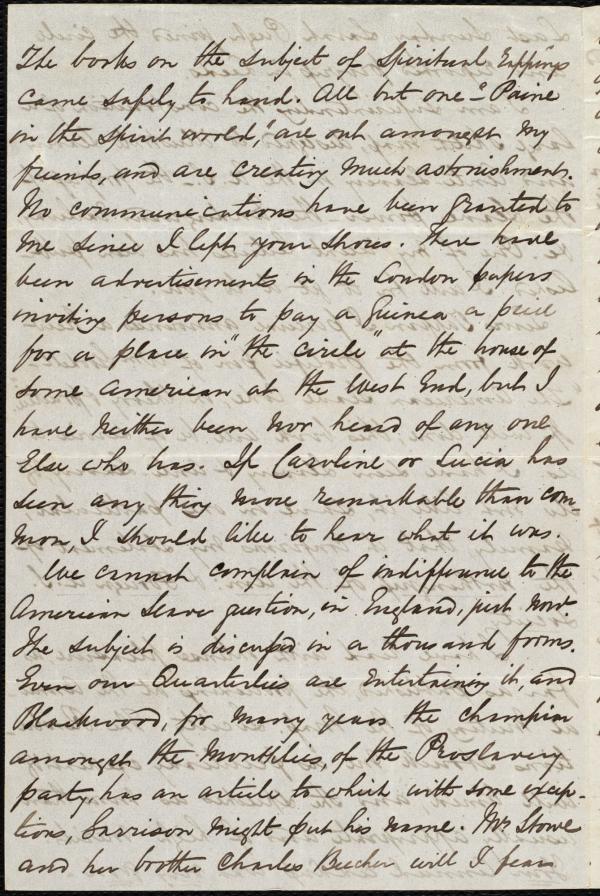 The books on the subject of Spiritual Rappings
came safely to hand. All but one - "Paine
in the Spirit world," are out amongst my
friends, and are creating much astonishment.
No communications have been granted to
me since I left your shores. There have
been advertisements in the London papers
inviting persons to pay a Guinea a piece
for a place in "the circle" at the house of
some American at the West End, but I
have neither been nor heard of any one
Else who has. If Caroline or Lucia has
seen any thing more remarkable than com-
mon, I should like to hear what it was.
We cannot complain of indifference to the
American Slave question, in England, just now.
The subject is discussed in a thousand forms.
Even our Quarterlies are entertaining it, and
Blackwood, for many years the champion
amongst the Monthlies, of the Proslavery
party, has an article to which with some excep-
tions, Garrison might put his name. Mrs Stowe
and her brother Charles Beecher will I fear